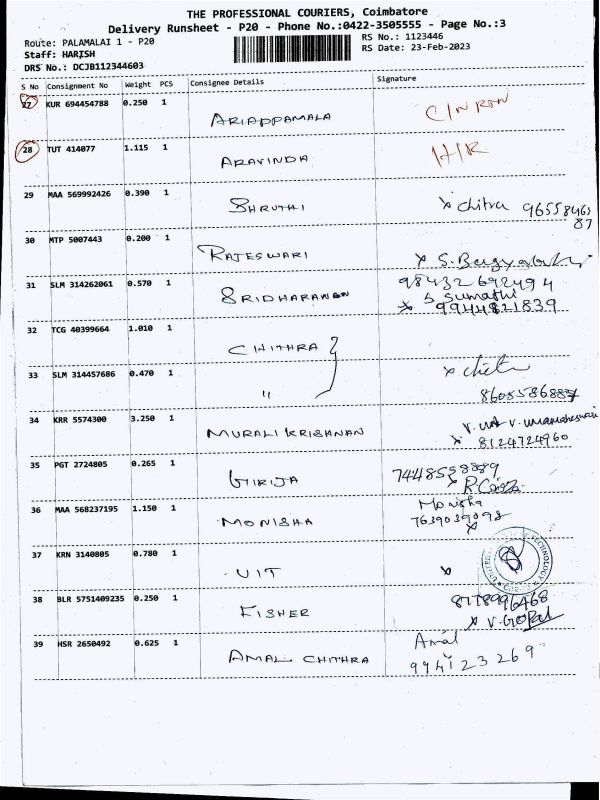 THE PROFESSIONAL COURIERS, Coimbatore
Delivery Runsheet - P20 - Phone No.:0422-3505555 - Page No.:3
Route: PALAMALAI 1 - P20 RS No.: 1123446
Staff: HARISH RS Date: 23-Feb-2023
DRS No.: DCJB112344603
S No Consignment No Weight PCS Consignee Details Signature
27 KUR 694454788 0.250 1 ARIAPPAMALA C/N RTN
28 TUT 414077 1.115 1 ARAVINDA H/R
29 MAA 569992426 0.390 1 SHRUTHI x Chitra 9655846587
30 MTP 5007443 0.200 1 RAJESWARI x S.
31 SLM 314262061 0.570 1 SRIDHARANAN 98432692494
S Sumathi
x 9944821839
32 TCG 40399664 1.010 1 CHITHRA
33 SLM 314457686 0.470 1 " x
8608586887
34 KRR 5574300 3.250 1 MURALI KRISHNAN V. Umamaheswari
x 8124724960
35 PGT 2724805 0.265 1 GIRIJA 7448558889
x
36 MAA 568237195 1.150 1 MONISHA Monisha
7639039098
x
37 KRN 3140805 0.780 1 UIT x
38 BLR 5751409235 0.250 1 FISHER 8778996468
x V. GOPAL
39 HSR 2650492 0.625 1 AMAL CHITHRA Amal
994123269